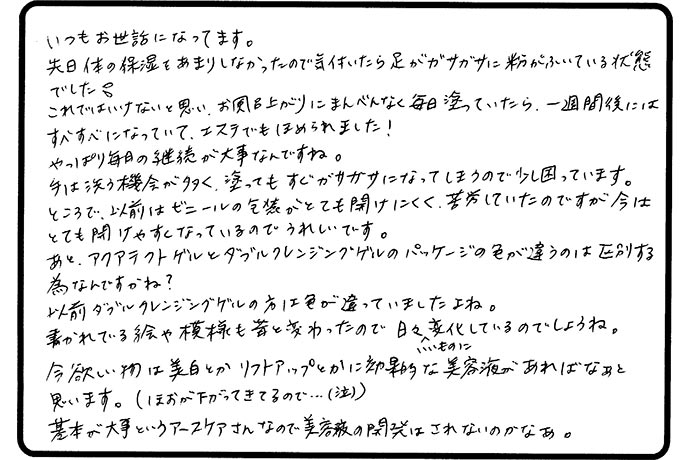 いつもお世話になってます。
先日体の保湿をあまりしなかったので気付いたら足がガサガサに粉がふいている状態
でした
これではいけないと思い、お風呂上がりにまんべんなく毎日塗っていたら、一週間後には
すべすべになっていて、エステでもほめられました！
やっぱり毎日の継続が大事なんですね。
手は洗う機会が多く、塗ってもすぐガサガサになってしまうので少し困っています。
ところで、以前はビニールの包装がとても開けにくく、苦労していたのですが今は
とても開けやすくなっているのでうれしいです。
あと、アクアテクトゲルとダブルクレンジングゲルのパッケージの色が違うのは区別する
為なんですかね？
以前ダブルクレンジングゲルの方は色が違っていましたよね。
書かれている絵や模様も昔と変わったので日々いいものに変化しているのでしょうね。
今欲しい物は美白とかリフトアップとかに効果的な美容液があればなぁと
思います。（ほおが下がってきてるので…（泣））
基本が大事というアースケアさんなので美容液の開発はされないのかなぁ。